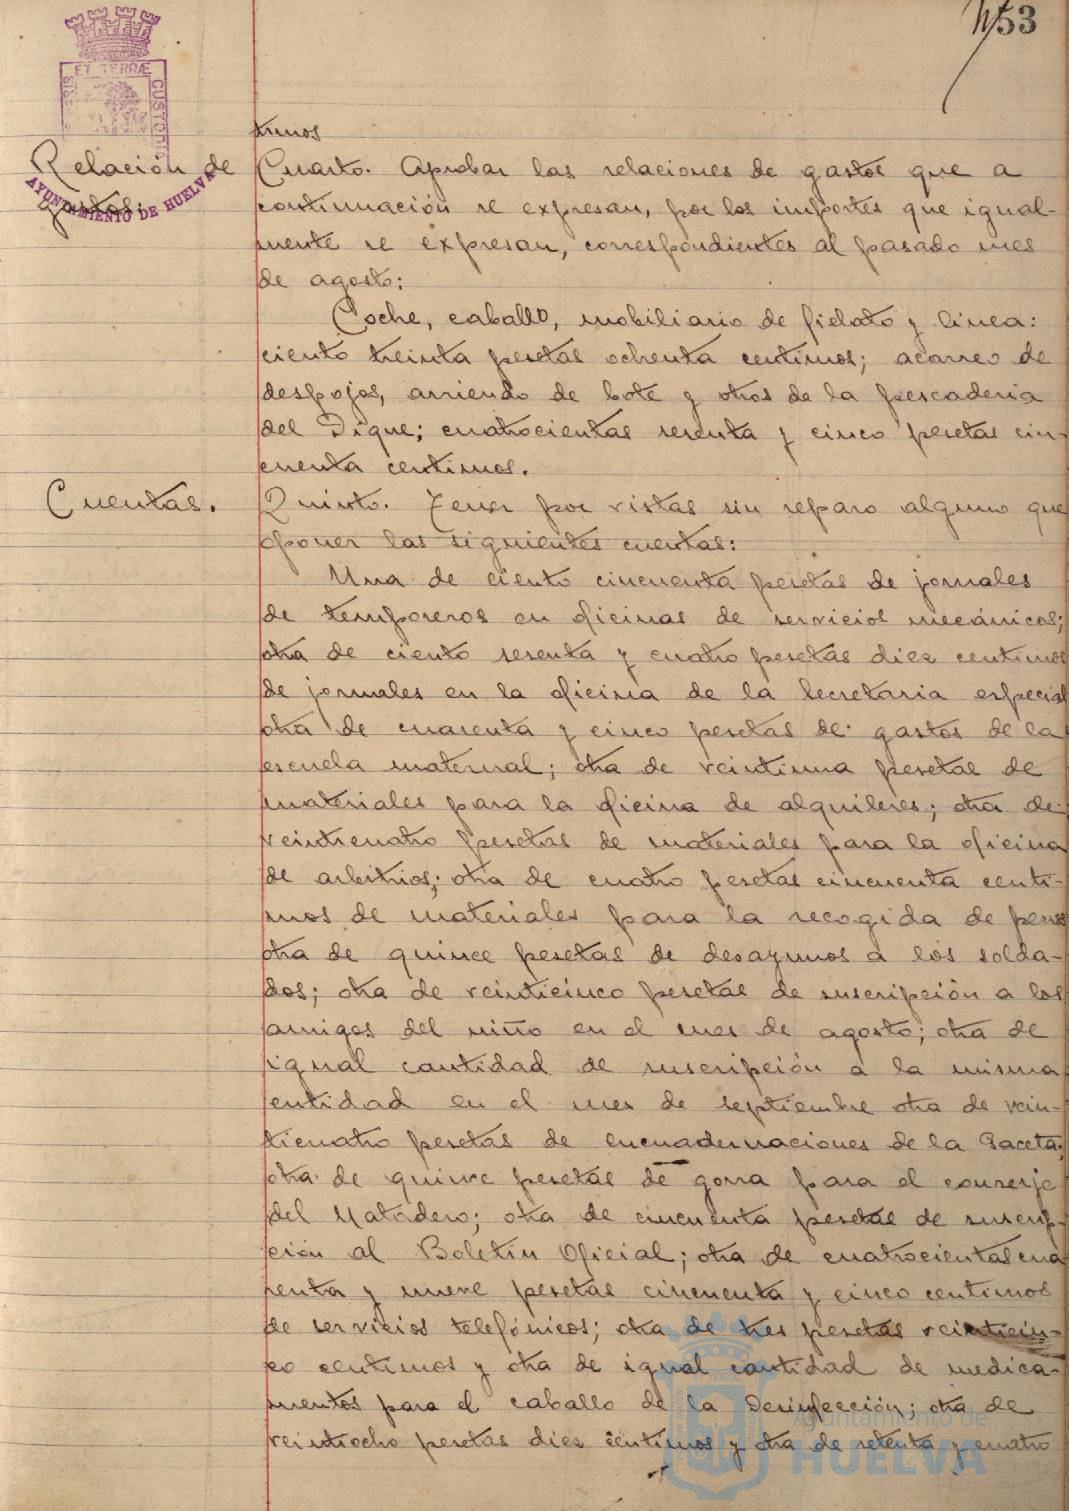 53
timos
Relación de
gastos:
Cuarto. Aprobar las relaciones de gastos que a
continuación se expresan, por los importes que igual-
mente se expresan, correspondientes al pasado mes
de agosto:
Coche, caballo, mobiliario de fielato y línea:
ciento treinta pesetas ochenta centimos; acarreo de
despojos, arriendo de bote y otros de la pescaderia
del Dique; cuatrocientas sesenta y cinco pesetas cin-
cuenta centimos.
Cuentas.
Quinto. Tener por vistas sin reparo alguno que
oponer las siguientes cuentas:
Una de ciento cincuenta pesetas de jornales
de temporeros en oficinas de servicios mecánicos;
otra de ciento sesenta y cuatro pesetas diez centimos
de jornales en la oficina de la Secretaria especial
otra de cuarenta y cinco pesetas de gastos de la
escuela maternal; otra de veintiuna pesetas de
materiales para la oficina de alquileres; otra de
veinticuatro pesetas de materiales para la oficina
de arbitrios; otra de cuatro pesetas cincuenta centi-
mos de materiales para la recogida de perros
otra de quince pesetas de desayunos a los solda-
dos; otra de veinticinco pesetas de suscripción a los
amigos del niño en el mes de agosto; otra de
igual cantidad de suscripción a la misma
entidad en el mes de septiembre otra de vein-
ticuatro pesetas de encuadernaciones de la Gaceta;
otra de quince pesetas de gorra para el conserje
del Matadero; otra de cincuenta pesetas de suscrip-
ción al Boletin Oficial; otra de cuatrocientas cua
renta y nueve pesetas cincuenta y cinco centimos
de servicios telefónicos; otra de tres pesetas veinticin-
co centimos y otra de igual cantidad de medica-
mentos para el caballo de la Desinfección; otra de
veintiocho pesetas diez centimos y otra de setenta y cuatro
ET TERRÆ CUSTOD
AYUNTAMIENTO DE HUELVA
Ayuntamiento de
HUELVA